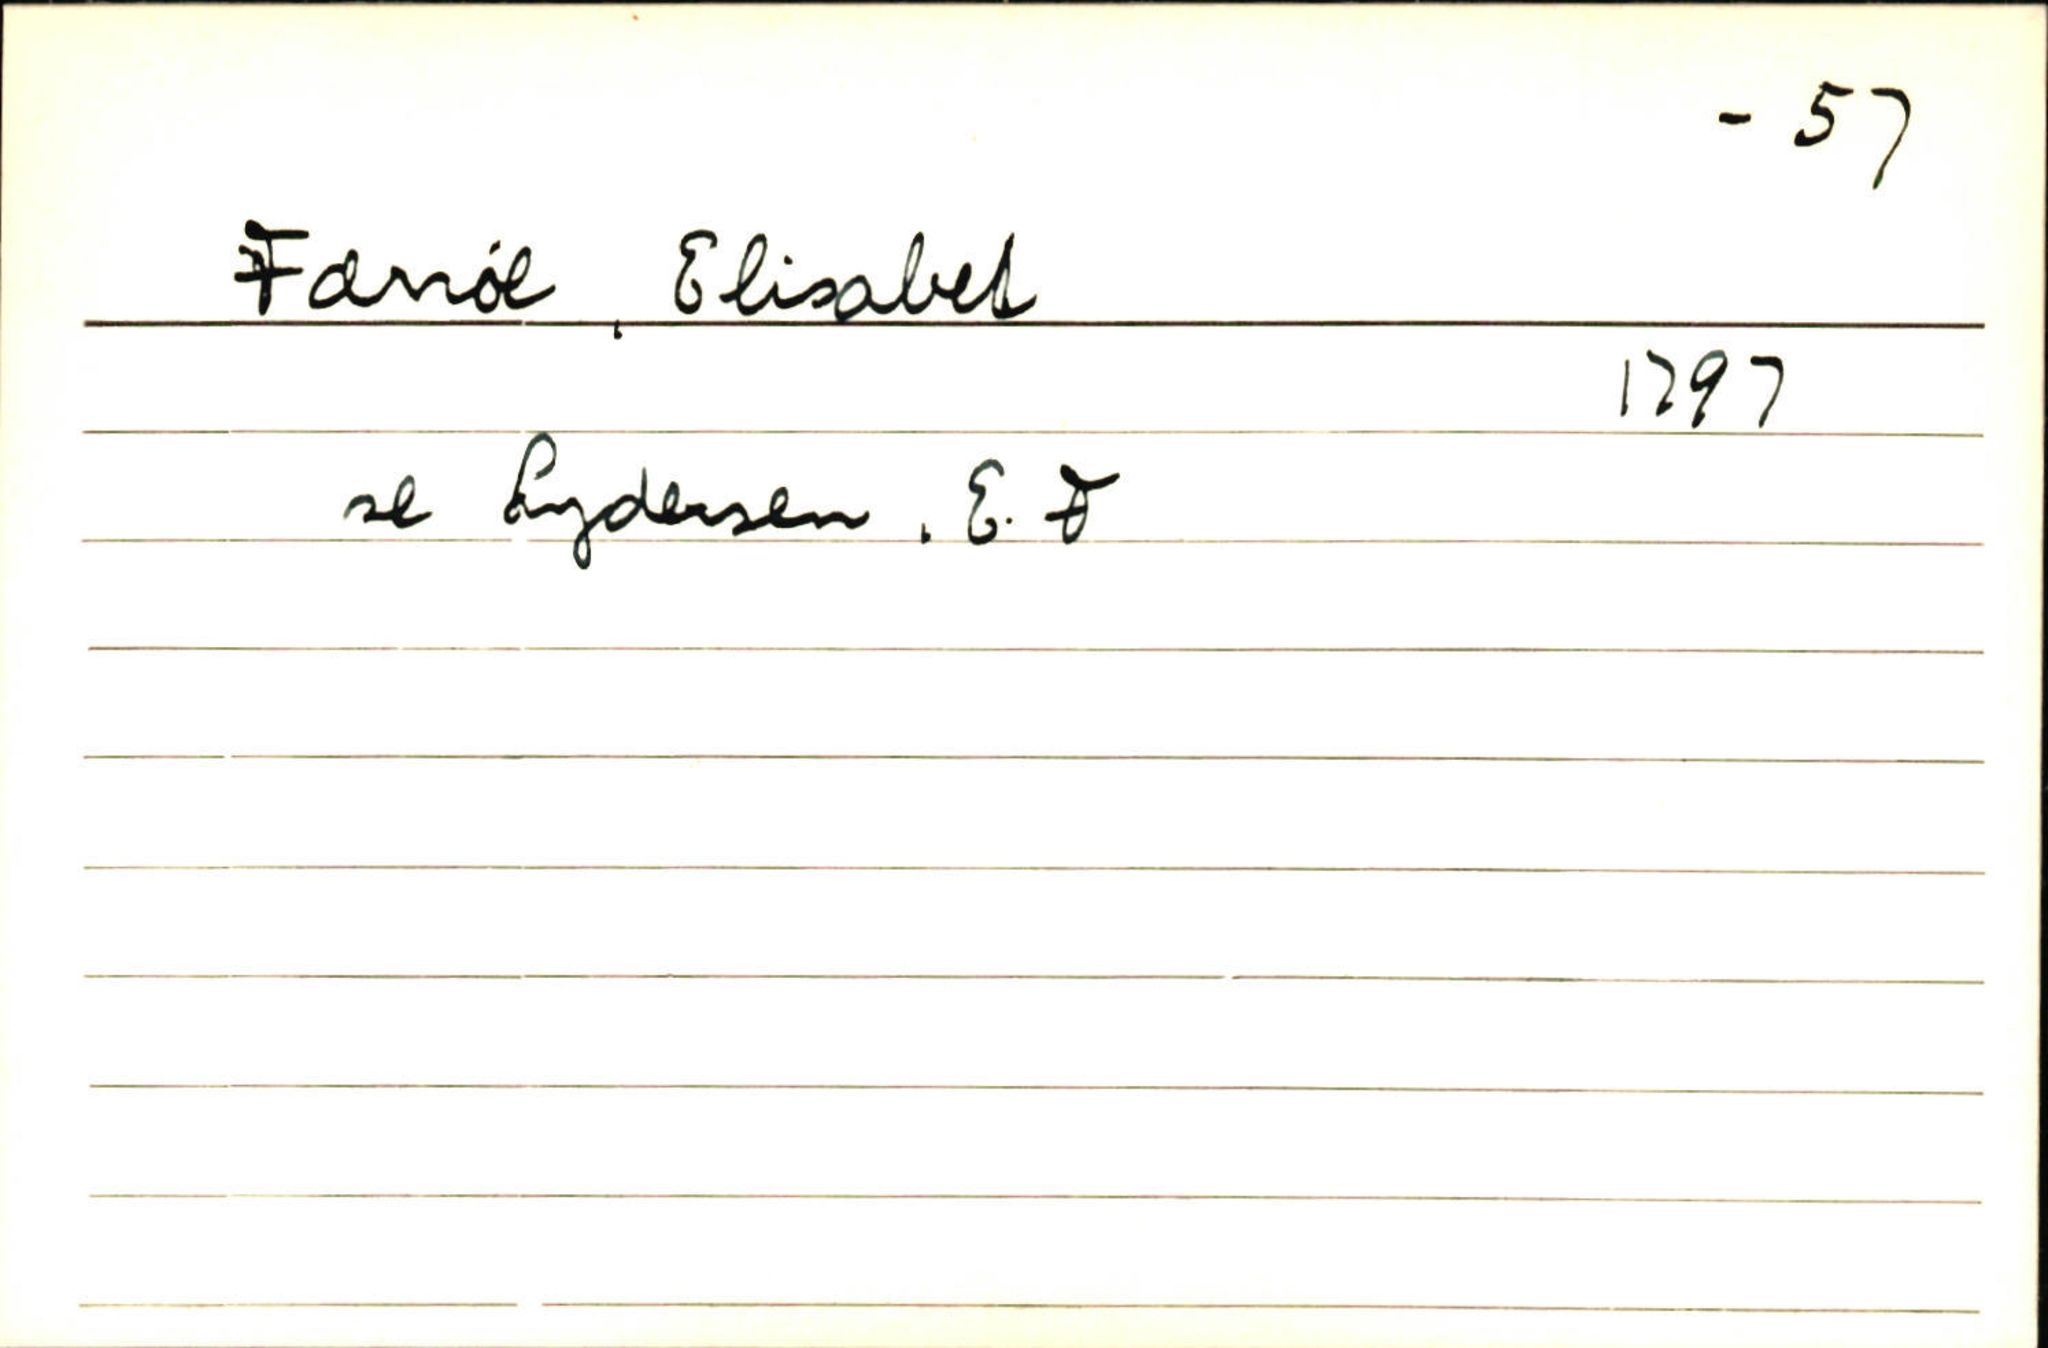 - 57
Færröe, Elisabet
1797
se Lydersen, E. F